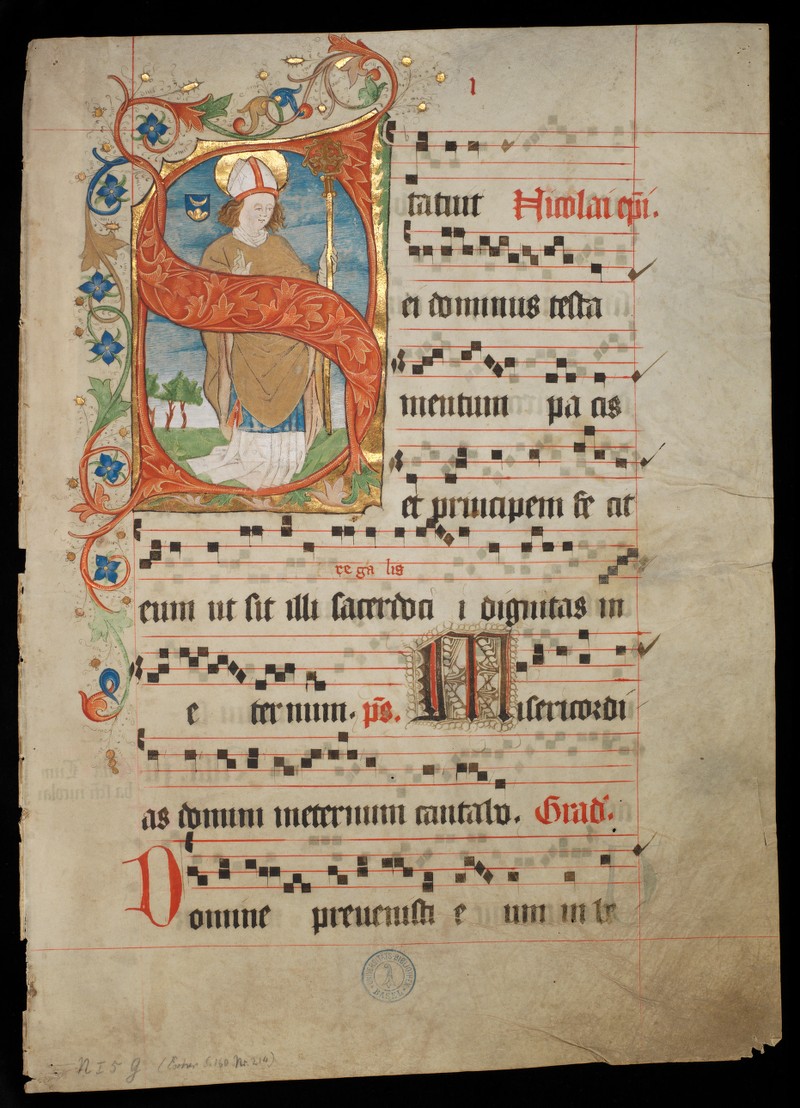 I
Statuit Nicolai ep̄i.
ei dominus testa
mentum pa cis
et principem fe cit
re ga lis
eum ut sit illi sacerdoci i dignitas in
e ternum. p̄s. Misericordi
as domini in eternum cantabo. Grad̄.
Domine preuenisti e um in be
BASEL
N I 5 g (Escher S. 160 Nr. 210)